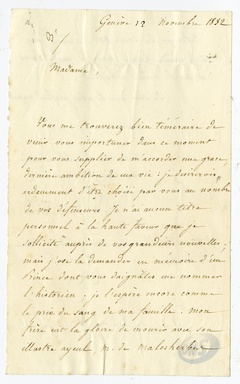 Genève 12 Novembre 1832
Madame,
Vous me trouverez bien téméraire de
venir vous importuner dans ce moment
pour vous supplier de m'accorder une grace,
dernière ambition de ma vie ; je désirerois
ardemment d'être choisi par vous au nombre
de vos défenseurs. Je n'ai aucun titre
personnel à la haute faveur que je
sollicite auprès de vos grandeurs nouvelles ;
mais j'ose la demander en mémoire d'un
Prince dont vous daignâtes me nommer
l'historien : je l'espère encore comme
le prix du sang de ma famille. mon
frère eut la gloire de mourir avec son
illustre ayeul m. de malesherbes